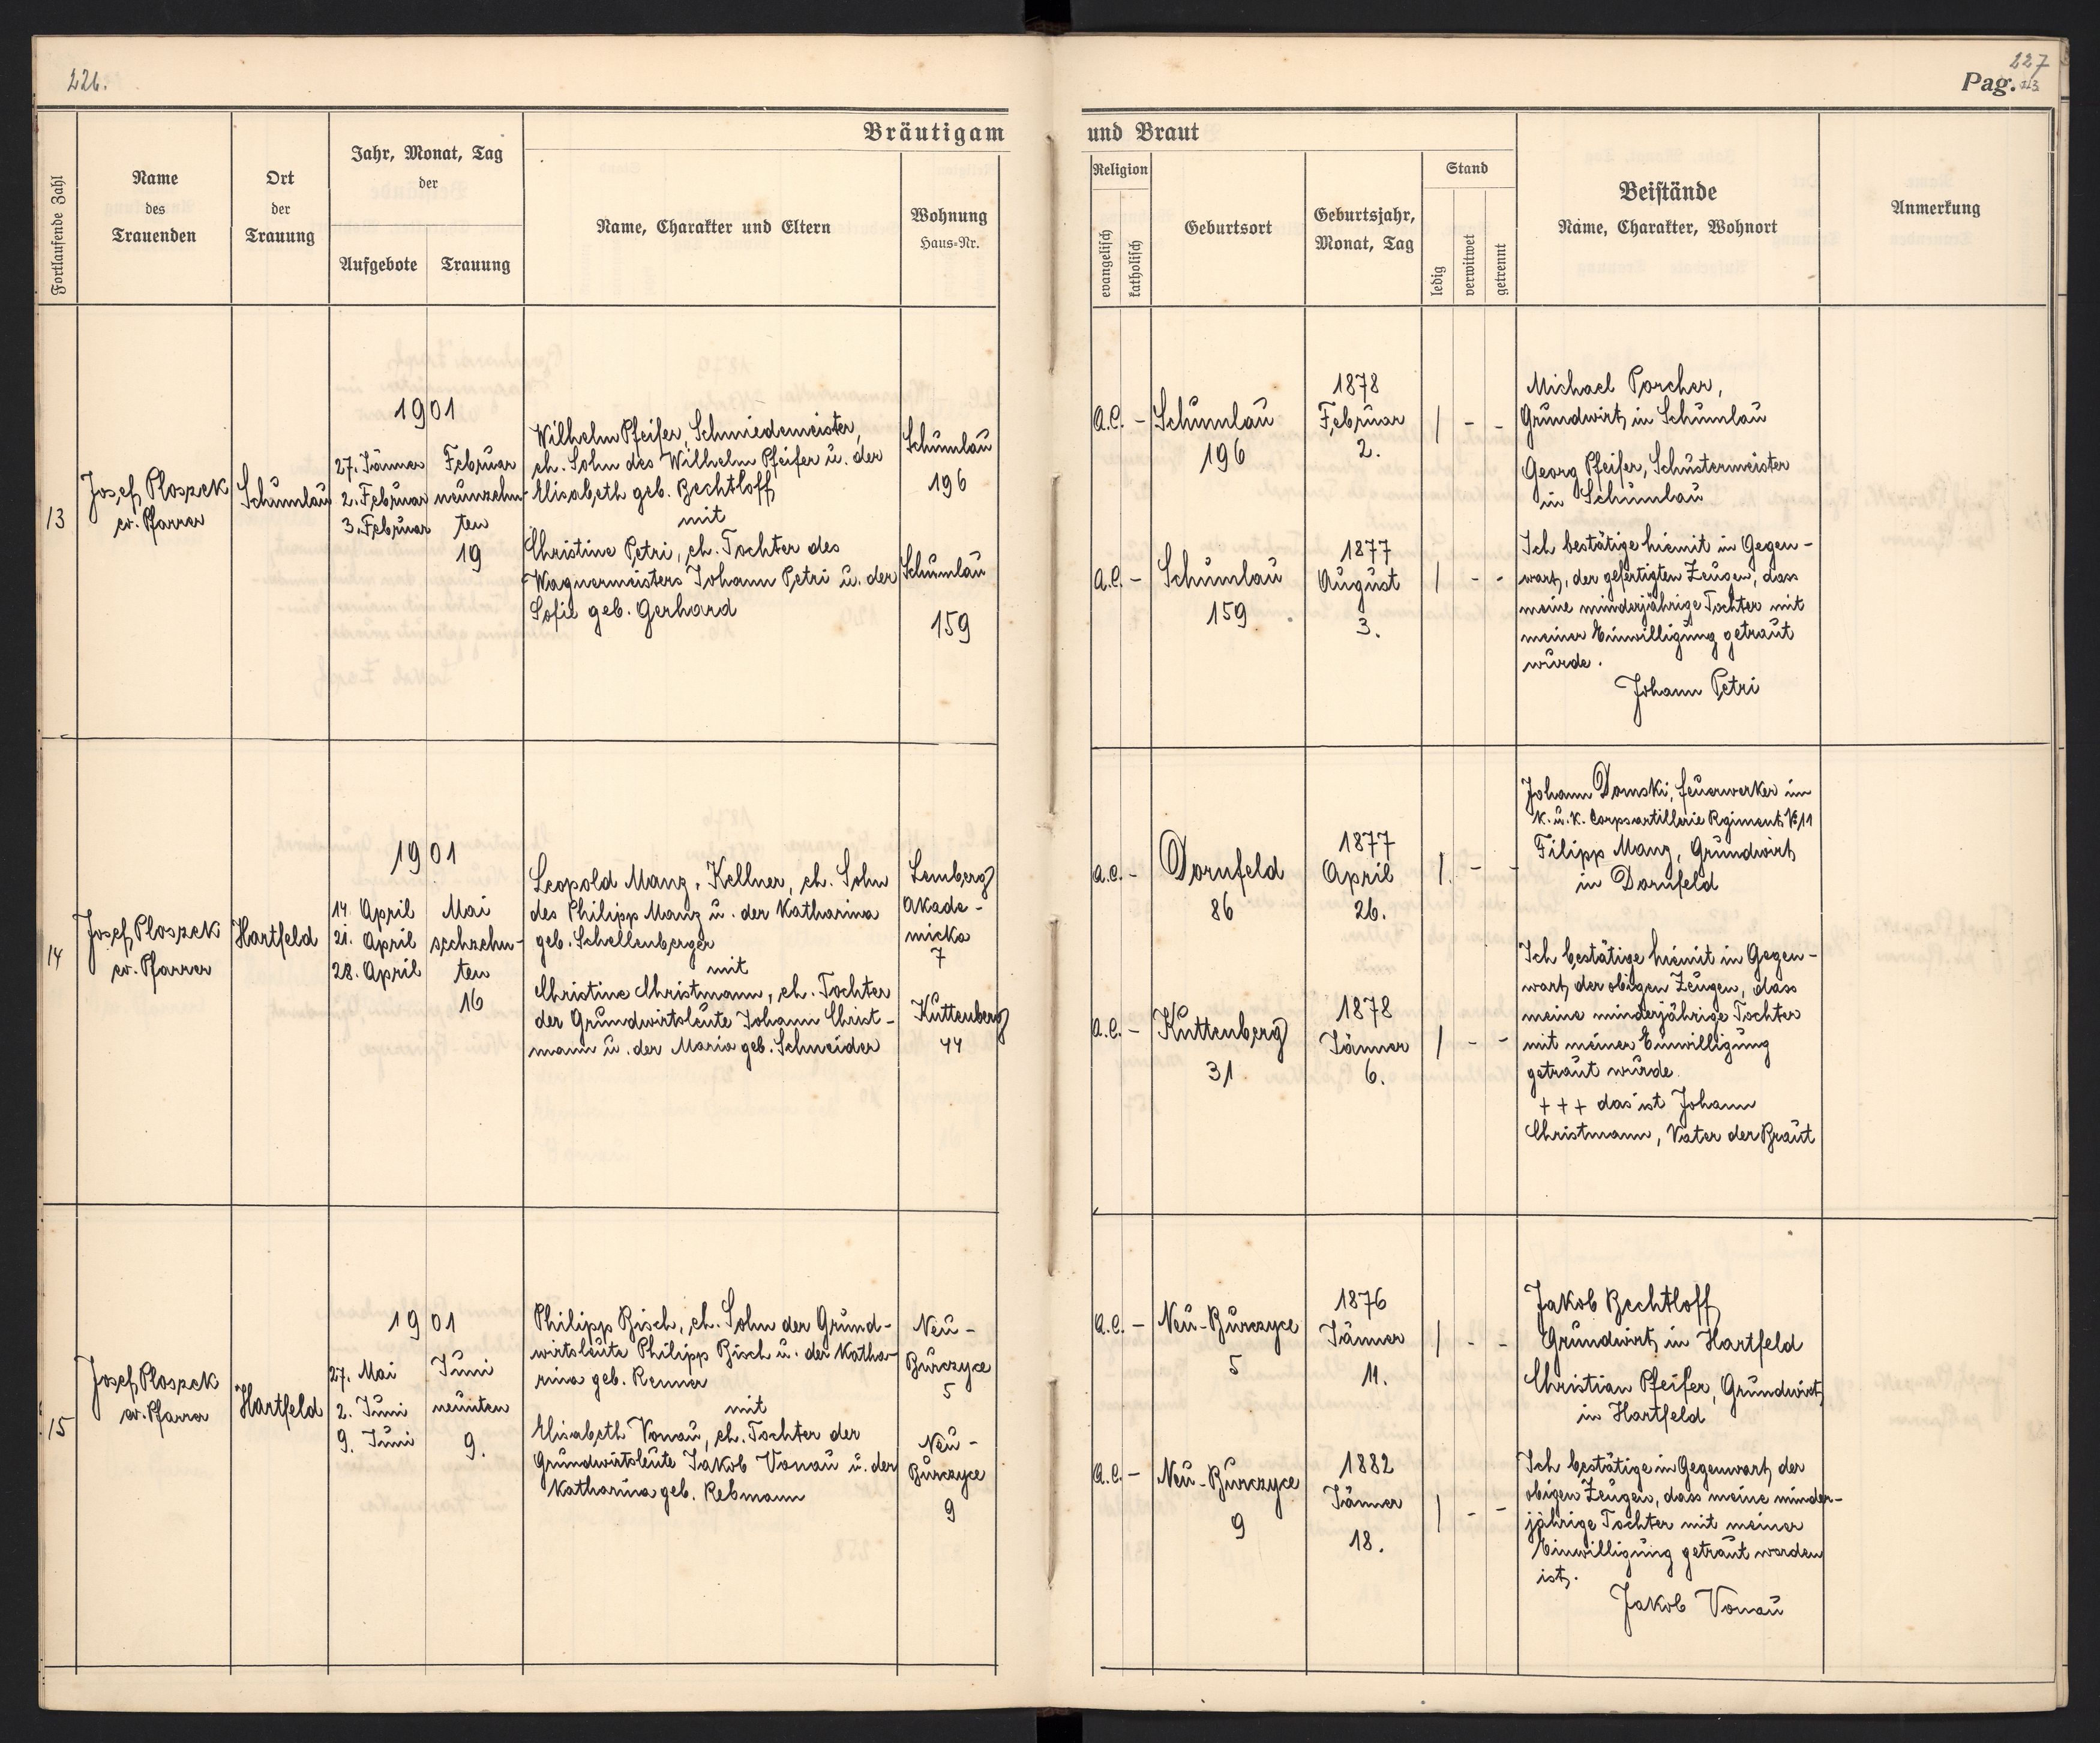 226.
227
Pag. 113
Bräutigam
und Braut
Fortlaufende Zahl
Name
des
Trauenden
Ort
der
Trauung
Jahr, Monat, Tag
der
Aufgebote
Trauung
Name, Charakter und Eltern
Wohnung
Haus=Nr.
Religion
evangelisch
katholisch
Geburtsort
Geburtsjahr,
Monat, Tag
Stand
ledig
verwitwet
getrennt
Beistände
Name, Charakter, Wohnort
Anmerkung
13
Josef Ploszek
ev. Pfarrer
Schumlau
1901
27. Jänner
2. Februar
3. Februar
Februar
neunzehn-
ten
19
Wilhelm Pfeifer, Schmiedemeister,
eh. Sohn des Wilhelm Pfeifer u. der
Elisabeth geb. Bechtloff
mit
Christine Petri, eh. Tochter des
Wagnermeisters Johann Petri u. der
Sofie geb. Gerhard
Schumlau
196
Schumlau
159
A.C. -
Schumlau
196
1878
Februar
2.
| - -
A.C. -
Schumlau
159
1877
August
3.
| - -
Michael Porcher,
Grundwirt in Schumlau
Georg Pfeifer, Schustermeister
in Schumlau
Ich bestätige hiemit in Gegen-
wart, der gefertigten Zeugen, dass
meine minderjährige Tochter mit
meiner Einwilligung getraut
wurde.
Johann Petri
14
Josef Ploszek
ev. Pfarrer
Hartfeld
1901
14. April
21. April
28. April
Mai
sechzehn-
ten
16
Leopold Manz, Kellner, eh. Sohn
des Philipp Manz u. der Katharina
geb. Schellenberger
mit
Christine Christmann, eh. Tochter
der Grundwirtsleute Johann Christ-
mann u. der Maria geb. Schneider
Lemberg
Akade-
micka
7
Kuttenberg
44
A.C. -
Dornfeld
86
1877
April
26.
| - -
A.C. -
Kuttenberg
31
1878
Jänner
6.
| - -
Johann Domski, Feuerwerker im
K. u. K. Corpsartillerie Rgiment No 11
Filipp Manz, Grundwirt
in Dornfeld
Ich bestätige hiemit in Gegen-
wart der obigen Zeugen, dass
meine minderjährige Tochter
mit meiner Einwilligung
getraut wurde.
+ + + das ist Johann
Christmann, Vater der Braut
15
Josef Ploszek
ev. Pfarrer
Hartfeld
1901
27. Mai
2. Juni
9. Juni
Juni
neunten
9.
Philipp Bisch, eh. Sohn der Grund-
wirtsleute Philipp Bisch u. der Katha-
rina geb. Renner
mit
Elisabeth Vonau, eh. Tochter der
Grundwirtsleute Jakob Vonau u. der
Katharina geb. Rebmann
Neu-
Burczyce
5
Neu-
Burczyce
9
A.C. -
Neu-Burczyce
5
1876
Jänner
11.
| - -
A.C. -
Neu-Burczyce
9
1882
Jänner
18.
| - -
Jakob Bechtloff
Grundwirt in Hartfeld
Christian Pfeifer, Grundwirt
in Hartfeld
Ich bestätige in Gegenwart der
obigen Zeugen, dass meine minder-
jährige Tochter mit meiner
Einwilligung getraut worden
ist.
Jakob Vonau